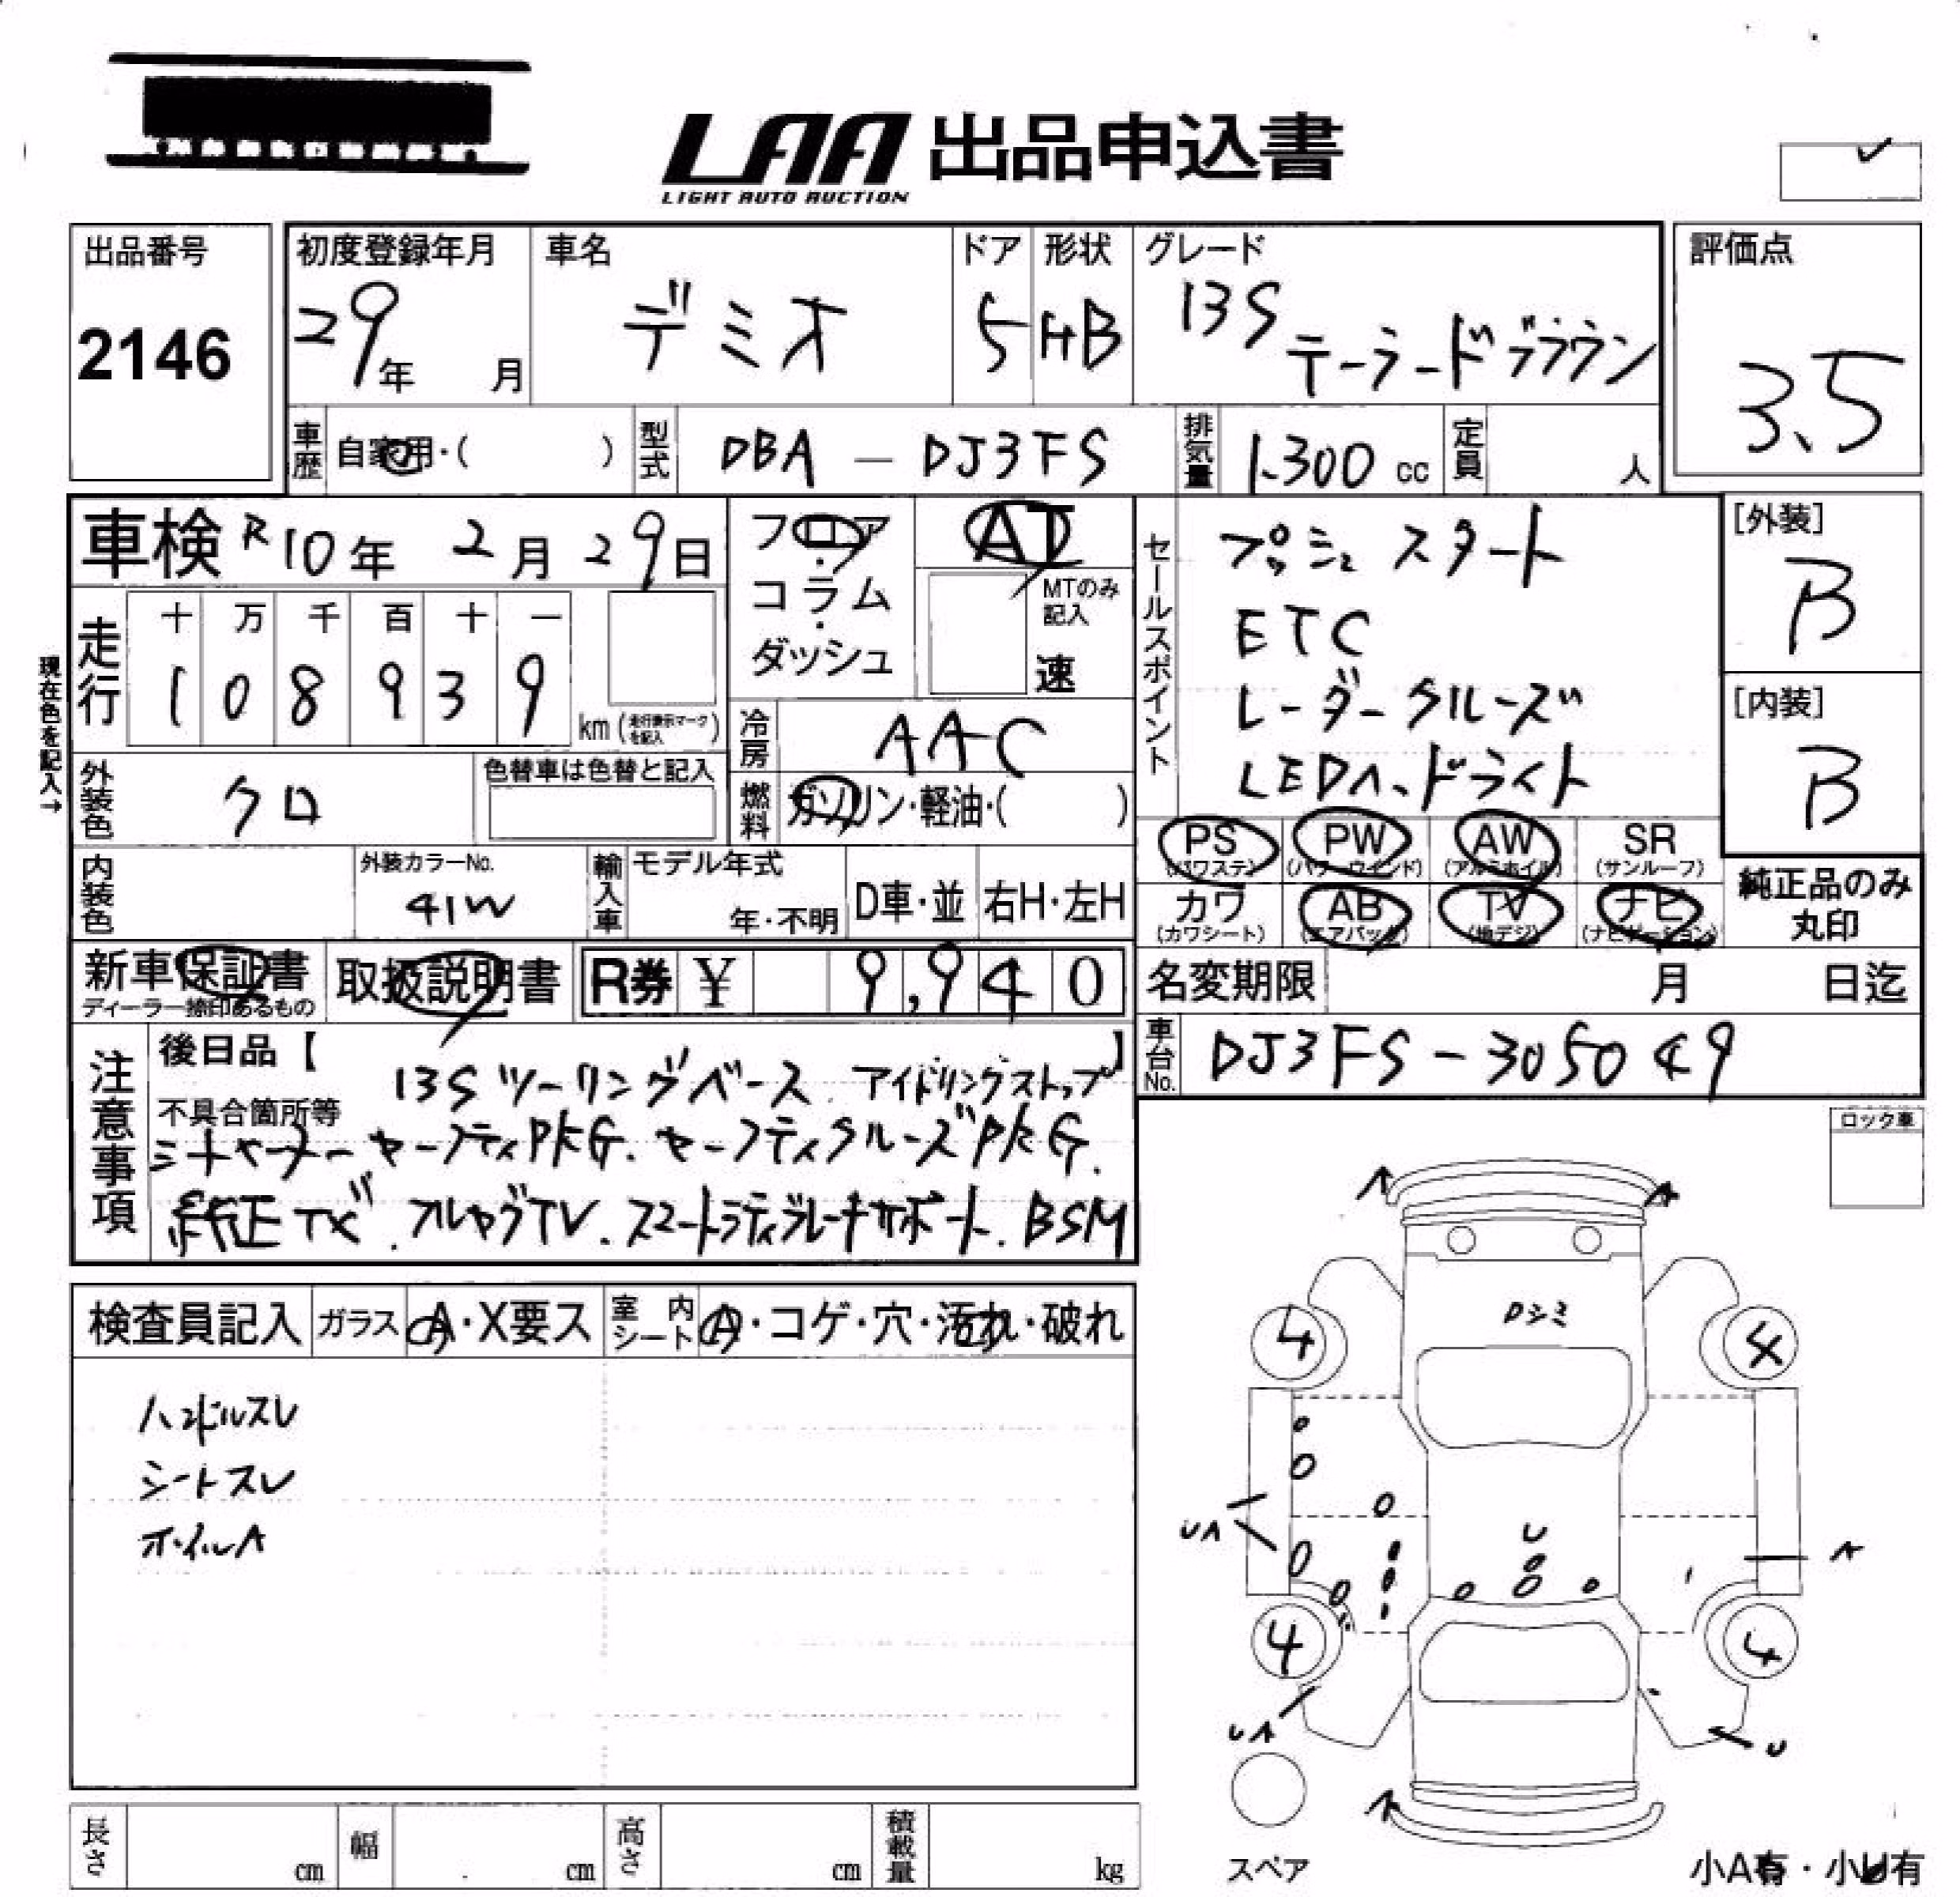 LAA 出品申込書
LIGHT AUTO AUCTION
出品番号
2146
初度登録年月
29年 月
車名
デミオ
ドア
5
形状
HB
グレード
13S
テーラードブラウン
評価点
3.5
車歴
自家用・( )
型式
DBA - DJ3FS
排気量
1.300 cc
定員
人
車検 R10年 2月 29日
フロア・コラム・ダッシュ
AT
MTのみ記入
速
セールスポイント
プッシュスタート
ETC
レーダークルーズ
LEDヘッドライト
[外装]
B
[内装]
B
現在色を記入→
走行
十 万 千 百 十 一
1 0 8 9 3 9
km (走行表示マークを記入)
冷房
AAC
外装色
クロ
色替車は色替と記入
燃料
ガソリン・軽油・( )
PS
(パワステ)
PW
(パワーウインド)
AW
(アルミホイル)
SR
(サンルーフ)
内装色
外装カラーNo.
41W
輸入車
モデル年式
年・不明
D車・並
右H・左H
カワ
(カワシート)
AB
(エアバック)
TV
(地デジ)
ナビ
(ナビゲーション)
純正品のみ
丸印
新車保証書
ディーラー捺印あるもの
取扱説明書
R券 ¥ 9,940
名変期限 月 日迄
車台No.
DJ3FS-305049
注意事項
後日品【 】
13Sツーリングベース アイドリングストップ
不具合箇所等
セーフティPKG. セーフティクルーズPKG.
純正TV. フルセグTV. スマートシティブレーキサポート. BSM
ロック車
検査員記入
ガラス
A・X要ス
室内シート
A・コゲ・穴・汚れ・破れ
ハンドルスレ
シートスレ
ホイルA
Dシミ
4
4
UA
U
A
4
4
UA
U
スペア
長さ
cm
幅
cm
高さ
cm
積載量
kg
小A有・小U有